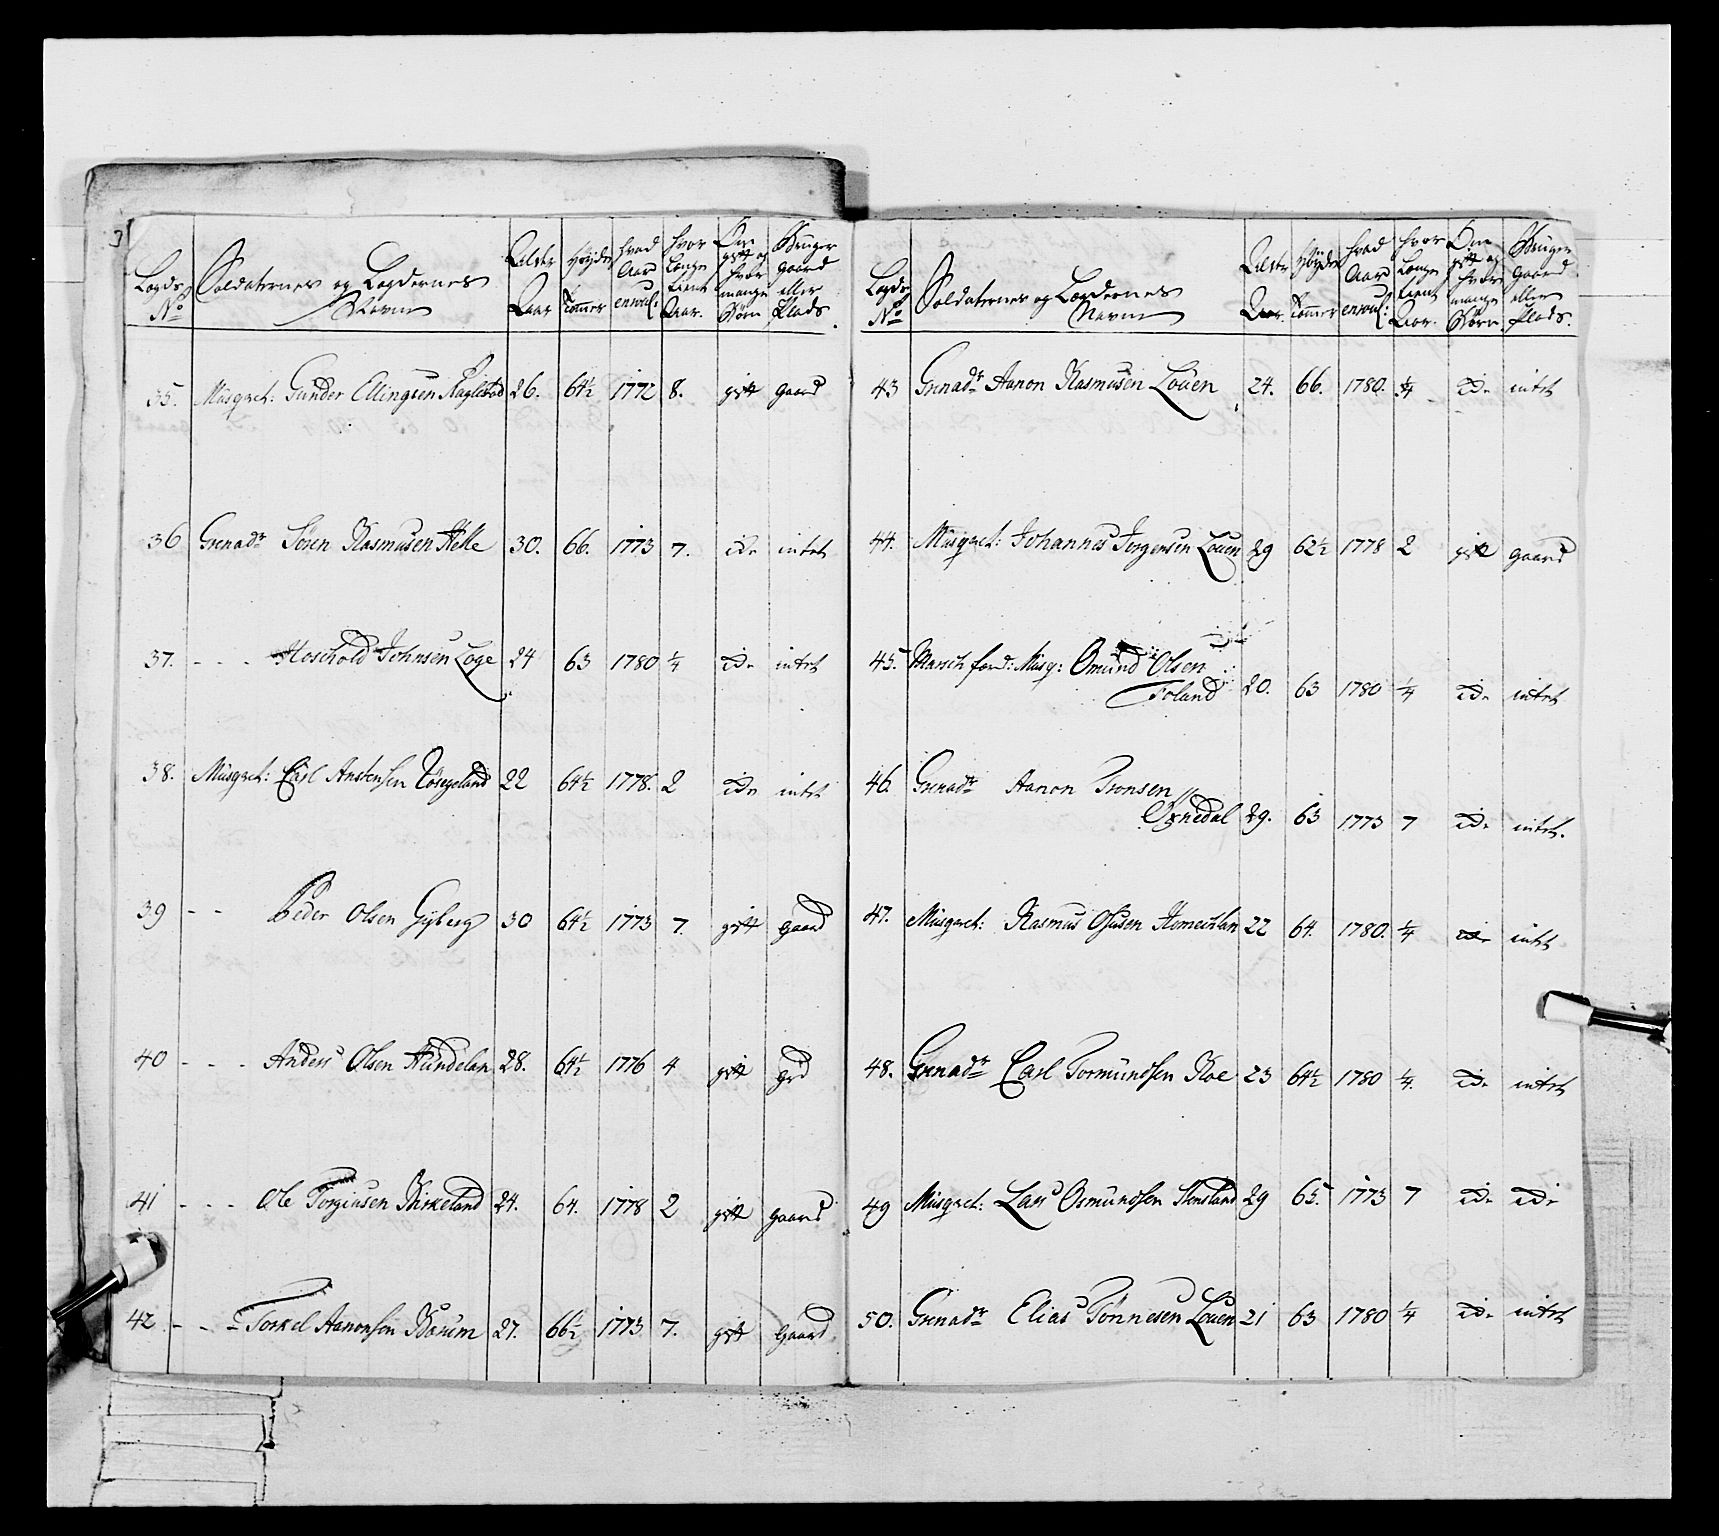 3
Lægds No | Soldaternes og Lægdernes Navne | Alder Aar | Høyde Tommer | hvad Aar enroul: | hvor Længe tient Aar. | Om gift og hvor mange Børn | Bruger gaard eller Plads
35. Musqvet: Gunder Ellingsen 26. 64½ 1772 8. gift gaard
36 Grenadr Søren Rasmusen Helle 30. 66. 1773 7. id. intet
37. - - - Hoschold Johnsen Loge 24 63 1780 ¼ id. intet
38. Musqvet: Carl Anstensen 22 64½ 1778. 2 id. intet
39 - - Peder Olsen Gyberg 30 64½ 1773 7. gift gaard
40 - - - Anders Olsen Hundelan 28. 64½ 1776 4 gift grd
41 - - - Ole Torgiusen Birkeland 24. 64. 1778 2 gift gaard
42 - - - Torkel Aanonsen Barum 27. 66½ 1773 7. gift gaard
Lægds No | Soldaternes og Lægdernes Navne | Alder Aar. | Høyde Tommer | hvad Aar enroul: | hvor Længe tient Aar. | Om gift og hvor mange Børn. | Bruger gaard eller Plads.
43 Grenadr Aanon Rasmusen Louen 24. 66. 1780. ¼ id. intet
44. Musqvet: Johannes Jorgensen Louen 29 62½ 1778 2 gift gaard
45. Marsch færd: Musq: Omund Olsen
Foland 20. 63 1780 ¼ id. intet
46. Grenadr Aanon Tronsen
Øxnedal 29. 63 1773 7 id. intet.
47. Musqvet: Rasmus Osusen 22 64. 1780. ¼ id. intet
48. Grenadr Carl Tormundsen Roe 23 64½ 1780 ¼. id. intet
49 Musqvet: Lars Osmundsen Stensland 29 65. 1773 7 id. id.
50. Grenadr Elias Tønnesen Louen 21 63 1780 ¼ id. intet